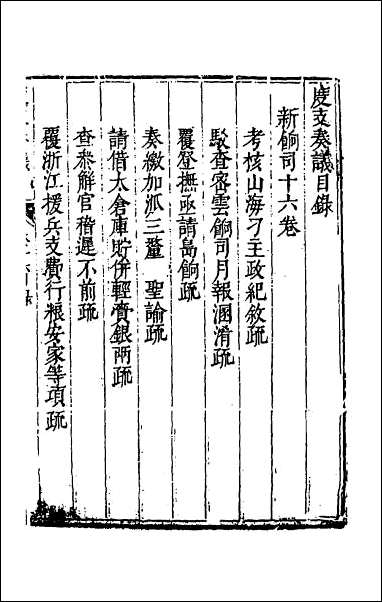 度支奏議目錄
新餉司十六卷
考核山海刁主政紀敘疏
駁查密雲餉司月報溷淆疏
覆登撫亟請島餉疏
奏繳加派三釐 聖諭疏
請借太倉庫貯併輕賫銀兩疏
查叅解官稽遲不前疏
覆浙江援兵支費行粮安家等項疏